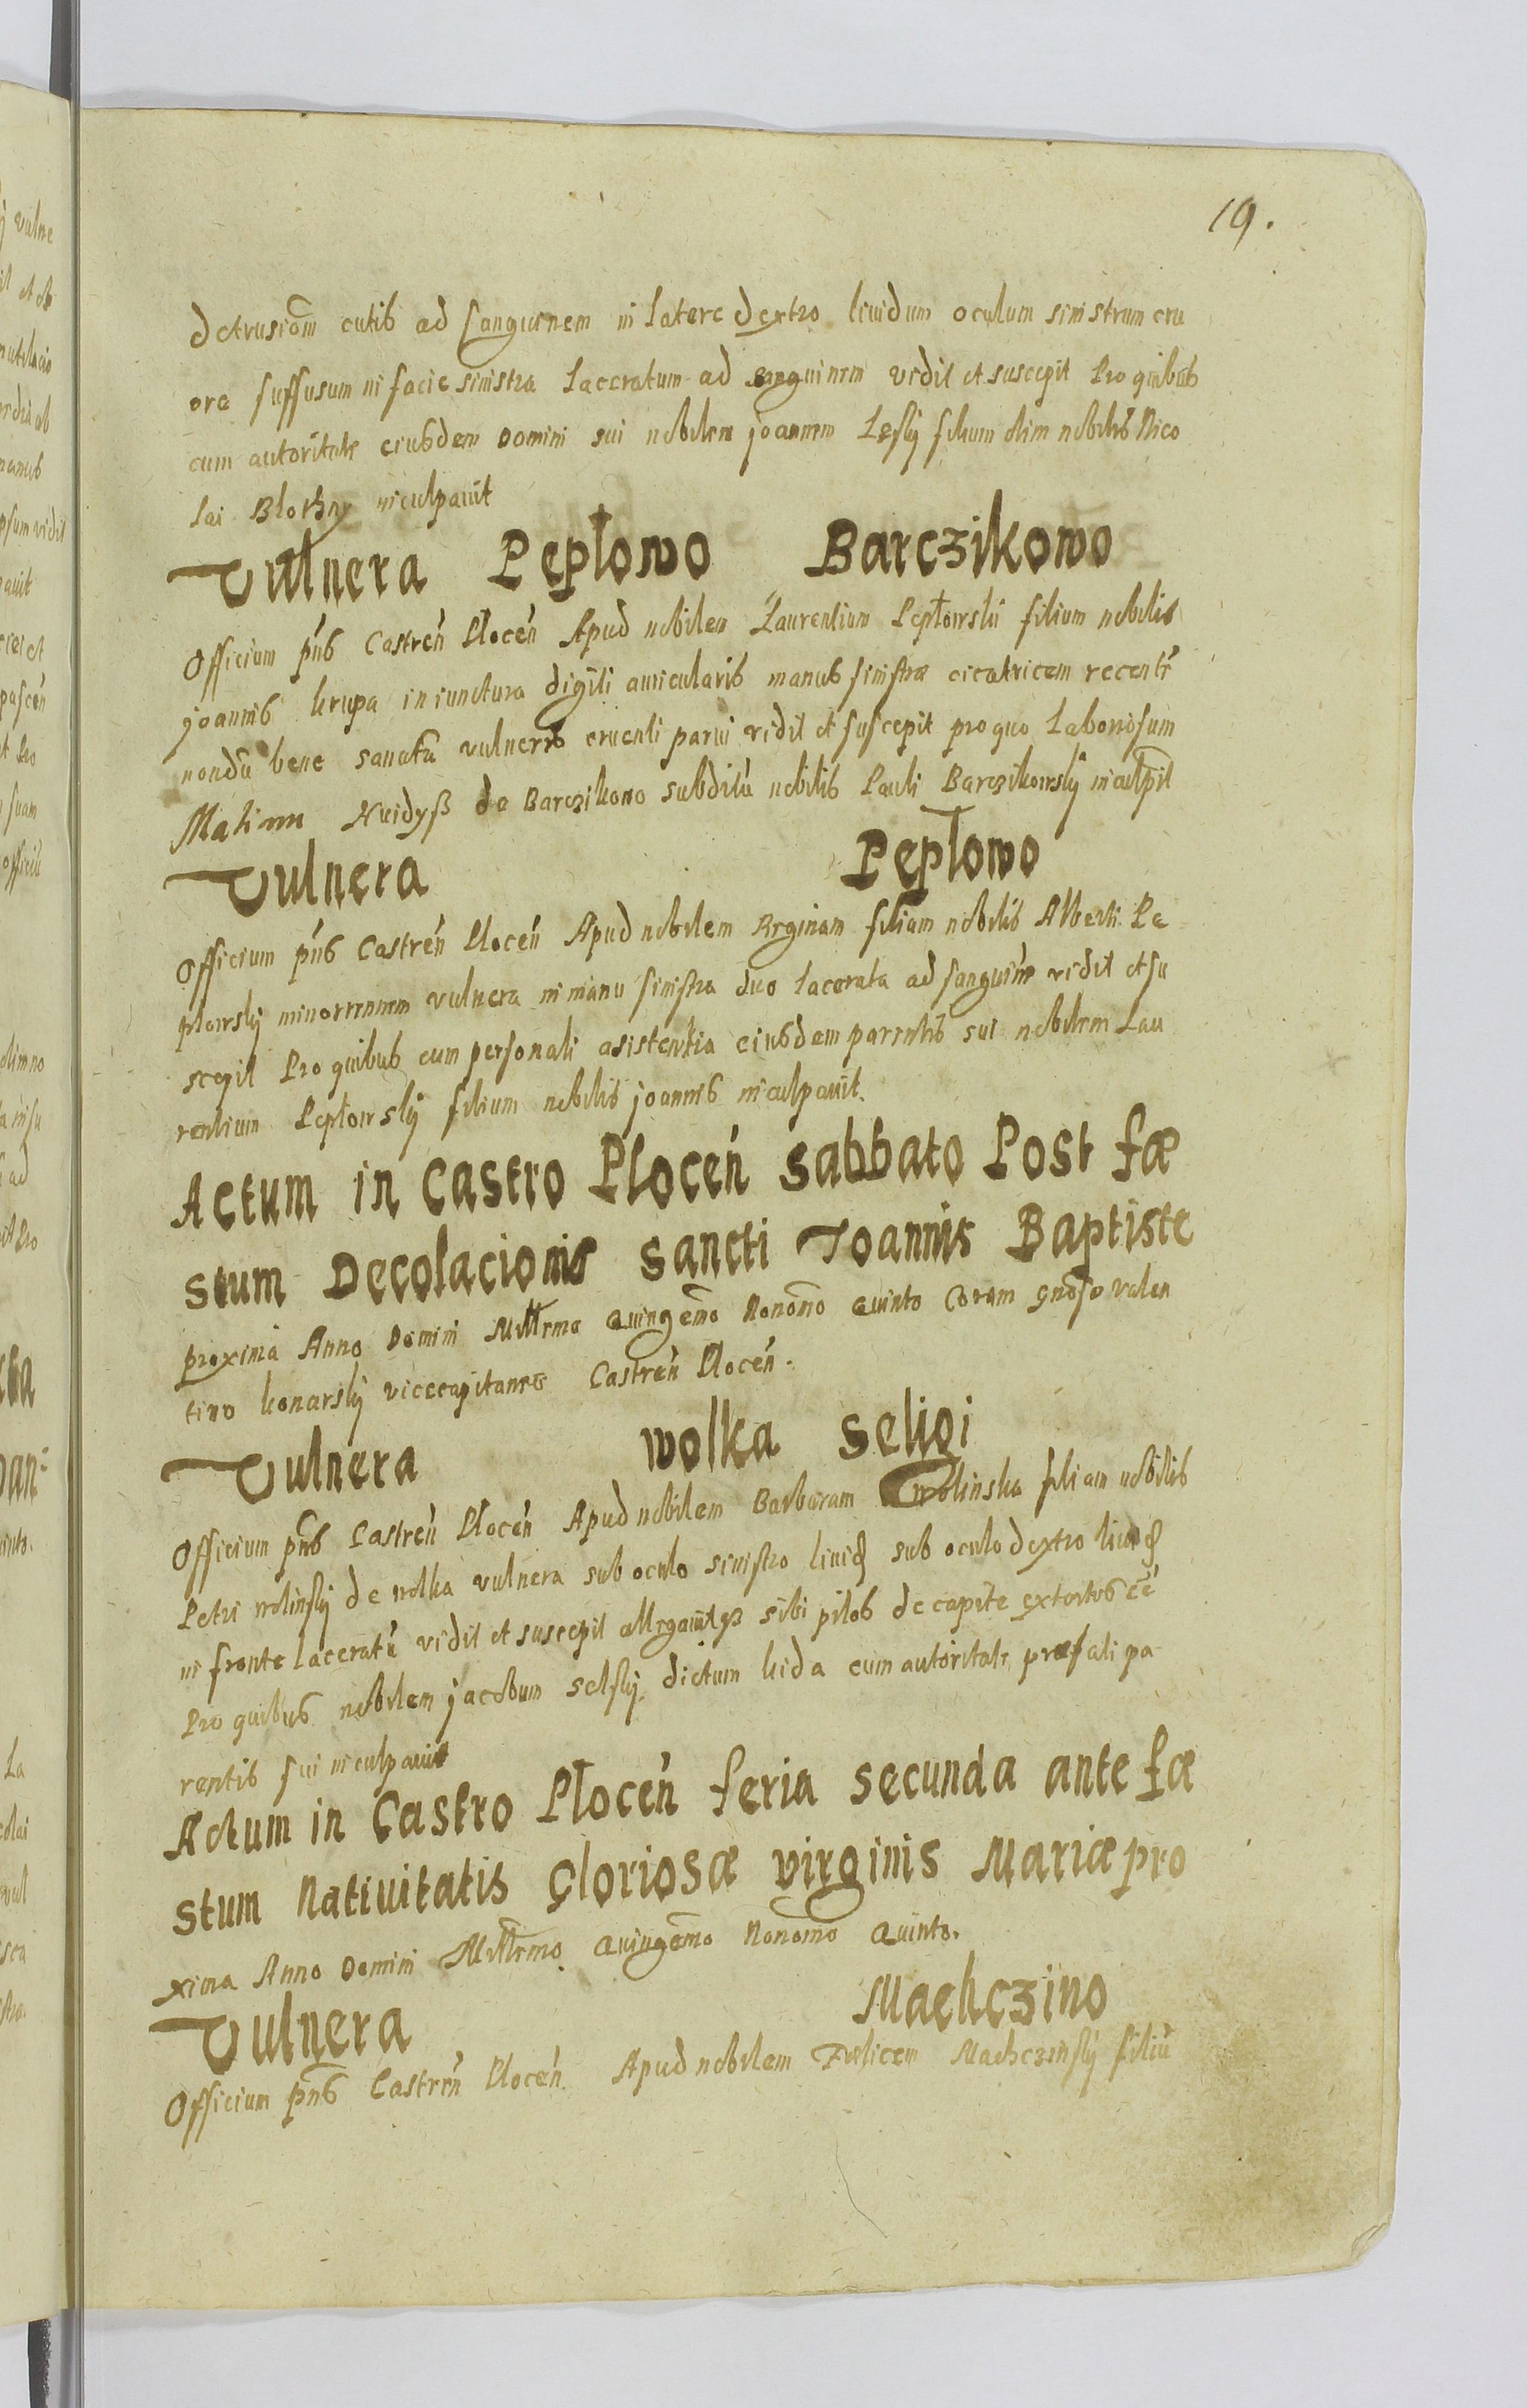 19.
detrusiom̃ cutis ad sanguinem in latere dextro liuidum oculum sinistrum cru
ore suffusum in facie sinistra laceratum ad sanguinem vidit et suscepit Pro quibus
cum autoritate eiusdem Domini sui nobilem joannem Lesky filium olim nobilis Nico
lai Blothny inculpauit
Vulnera Pepłowo Barczikowo
Officium pñs Castreń Płoceń Apud nobilem Laurentium Pepłowskii filium nobilis
joannis krupa in iunctura digiti auricularis manus sinistræ cicatricem recentē
nondū bene sanatā vulneris cruenti parui vidit et suscepit pro quo Laboriosum
de Barczikowo subditū nobilis Pauli Barczikowskij inculpit
Vulnera Pepłowo
Officium pñs Castreń Płoceń Apud nobilem Reginam filiam nobilis Alberti Pe
płowskij minorennem vulnera in manu sinistra duo lacerata ad sanguinē vidit et su
scepit Pro quibus cum personali asistentia eiusdem parentis sui nobilem Lau
rentium Pepłowskij filium nobilis joannis inculpauit.
Actum in Castro Płoceń Sabbato Post fæ
stum Decolacionis Sancti Joannis Baptiste
proxima Anno Domini Millrmo Quingem̃o Nonom̃o Quinto Coram gnoso valen
tino konarskij vicecapitaneo Castreń Płoceń.
Vulnera wolka Seligi
Officium pñs Castreń Płoceń Apud nobilem Barbaram wolinska filiam nobilis
Petri wolinskij de wolka vulnera sub oculo sinistro liuid sub oculo dextro liuid
in fronte laceratū vidit et suscepit allegauitqз sibi pilos de capite extortos eē
Pro quibus nobilem jacobum Selskij dictum kida cum autoritate præfati pa
rentis sui inculpauit
Actum in Castro Płoceń feria secunda ante fæ
stum Natiuitatis Gloriosæ virginis Mariæ pro
xima Anno Domini Millrmo Quingem̃o Nonom̃o Quinto.
Vulnera Machczino
Officium pñs Castreń Płoceń Apud nobilem Fælicem Machczinskij filiū